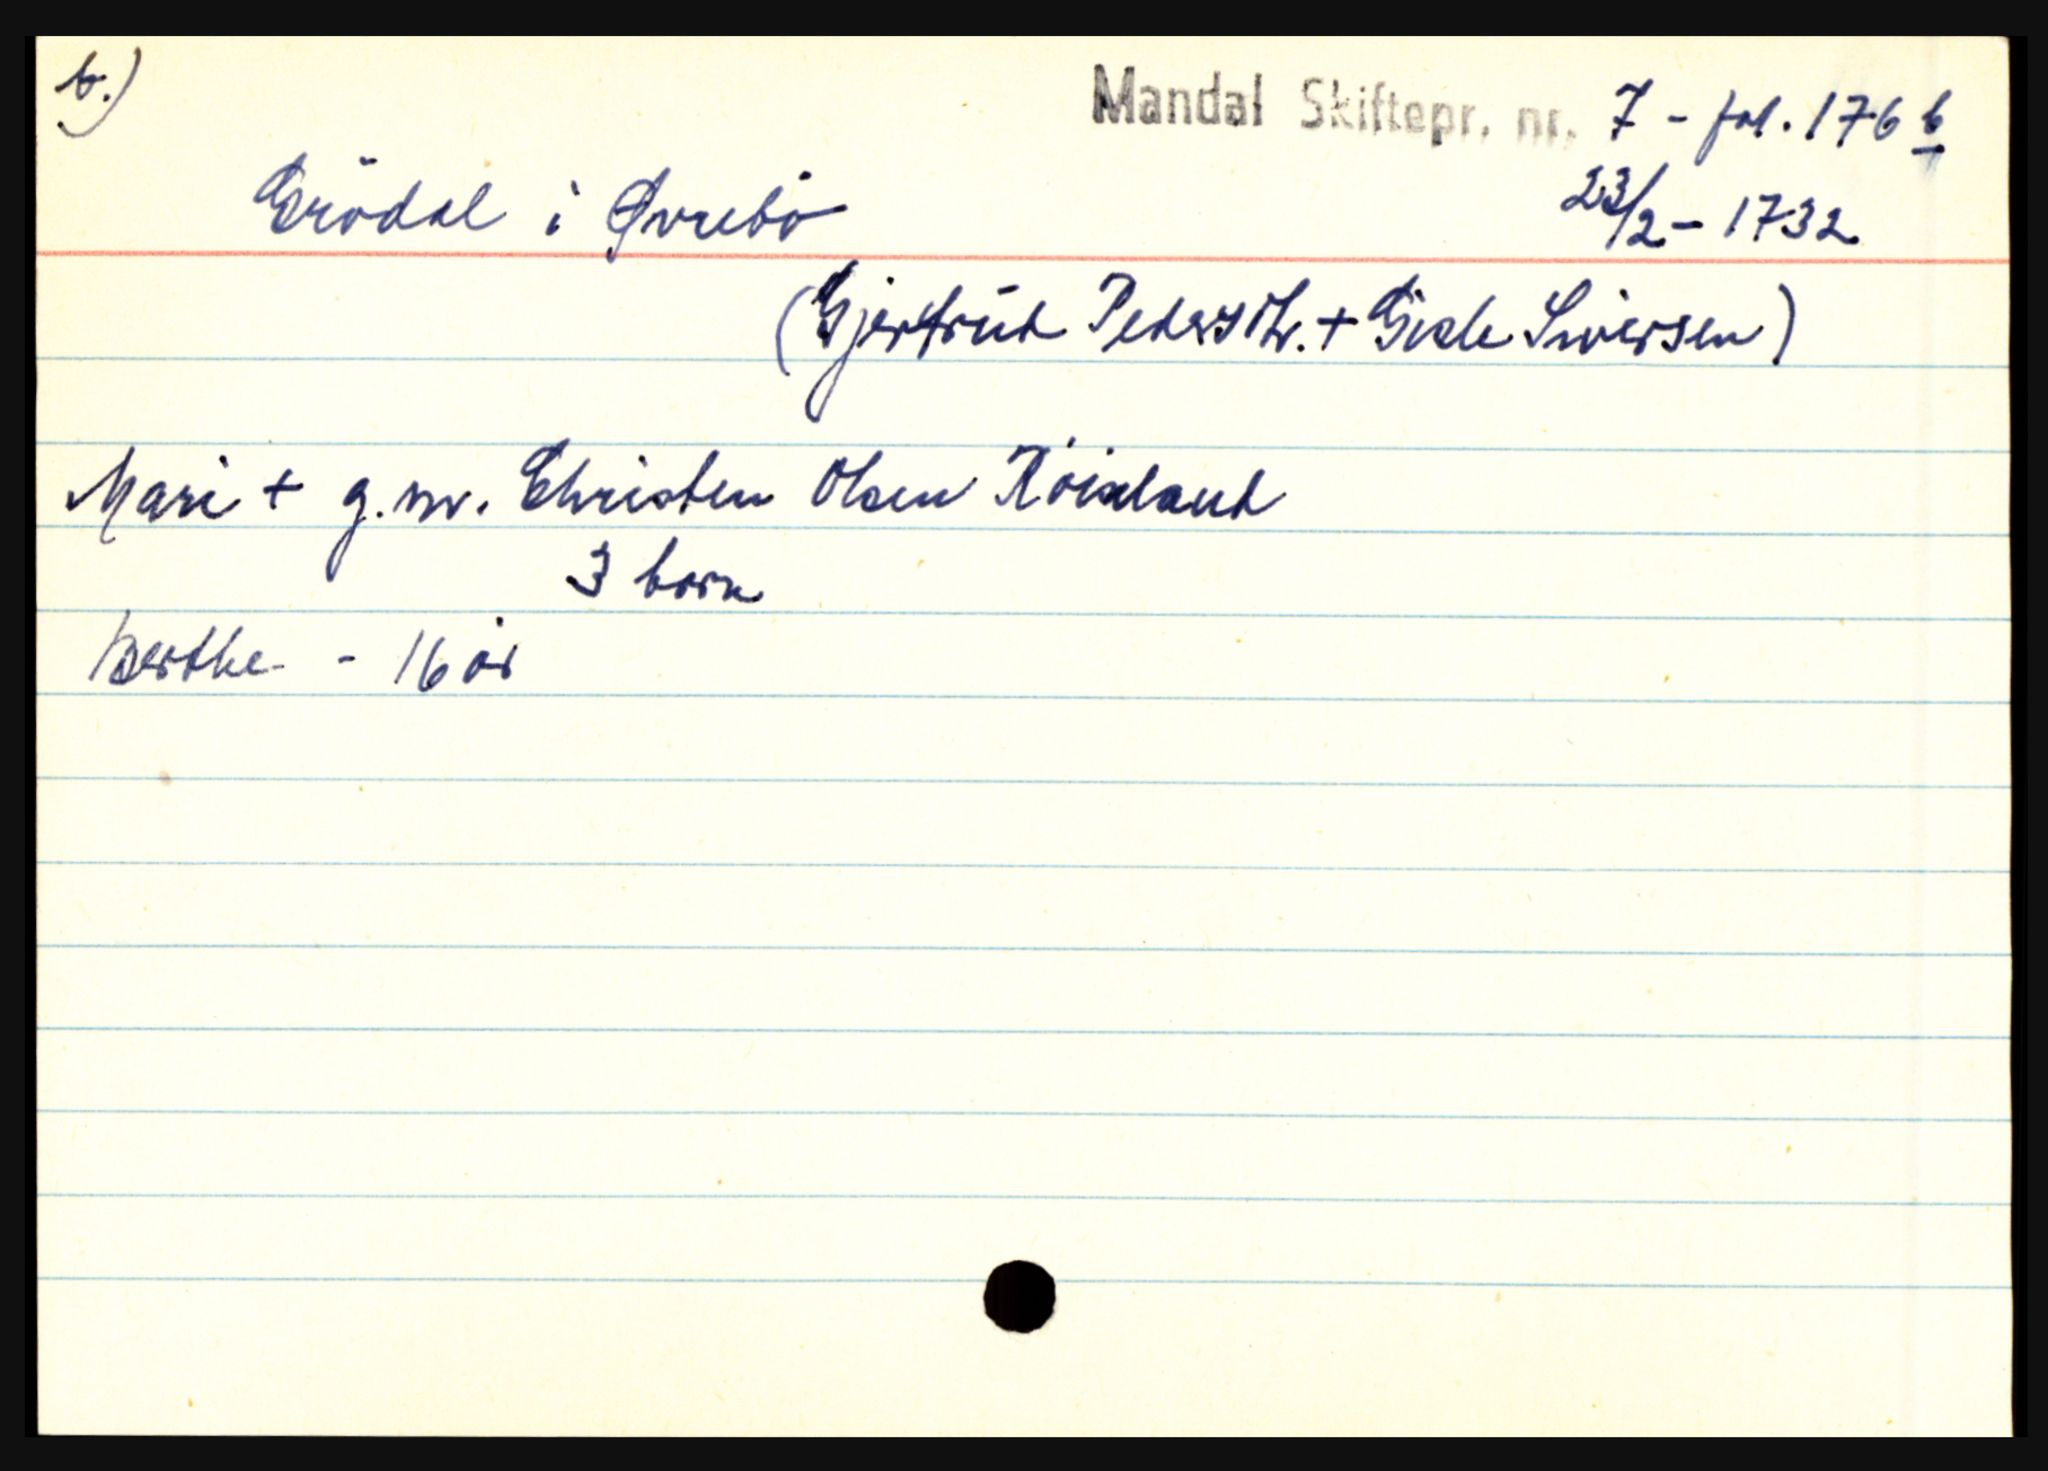 b.)
Mandal Skiftepr. nr. 7 - fol. 176 b
Grödal i Øvrebö
23/2 - 1732
(Gjertrüd Pedersdtr. + Gisle Siversen)
Mari + g.m. Christen Olsen Röiseland
3 born
Berthe - 16 år